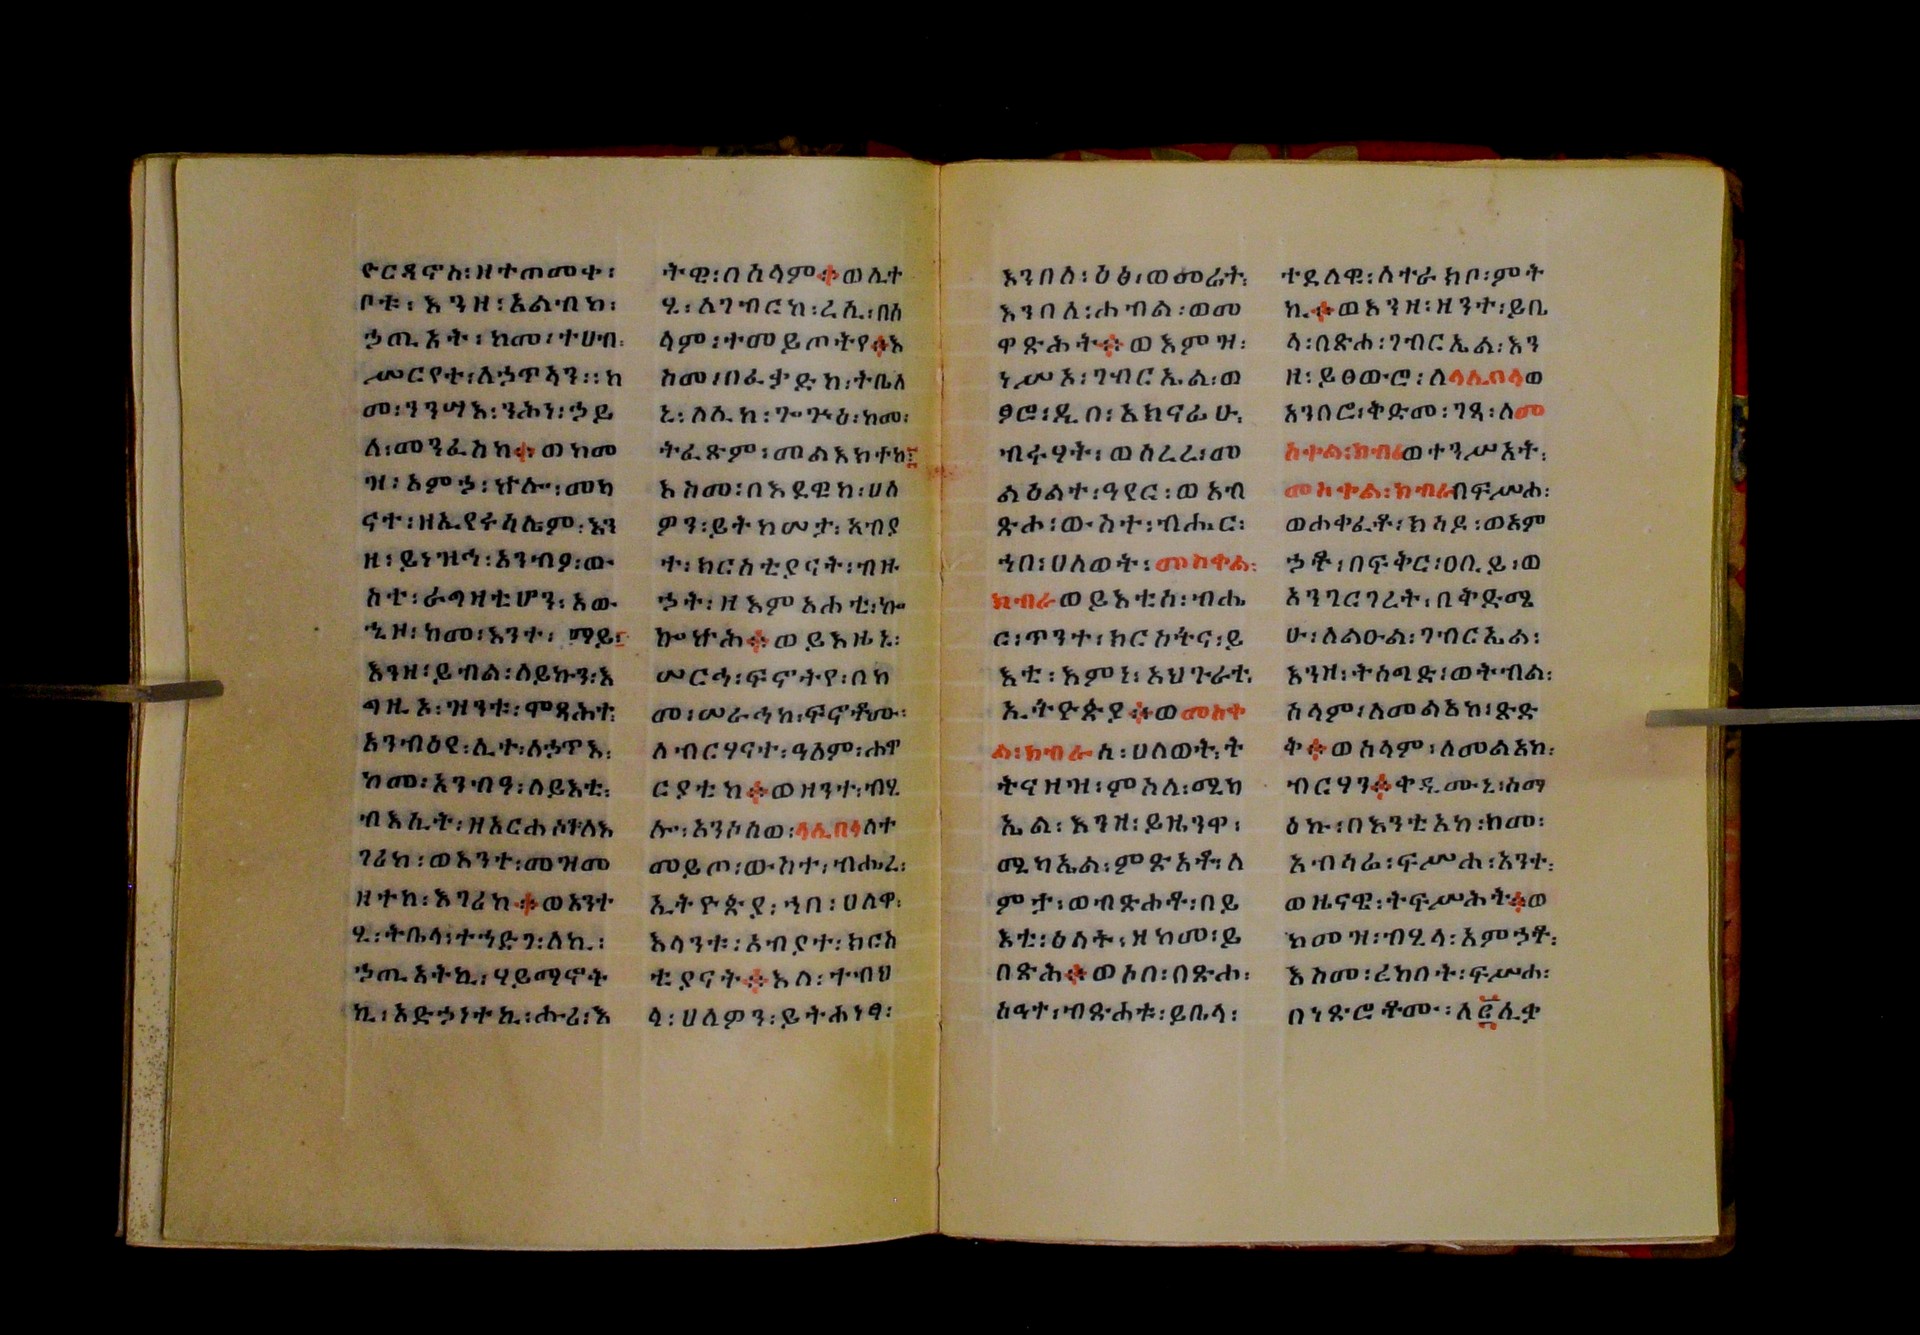 ዮርዳኖስ፡ዘተጠመቀ፡
ቦቱ፡እንዘ፡አልብከ፡
ኃጢአት፡ከመ፡ተሀብ፡
ሥርየተ፡ለኃጥኣን፡፡ከ
መ፡ንንሣእ፡ንሕነ፡ኃይ
ለ፡መንፈስከ፨ወከመ
ዝ፡እምኃ፡ኵሎ፡መካ
ናተ፡ዘኢየሩሳሌም፡እን
ዘ፡ይነዝኅ፡አንብዖ፡ው
ስተ፡ራግዘቲሆን፡አው
ኂዞ፡ከመ፡አንተ፡ማይ፡
እንዘ፡ይብል፡ለይኩን፡እ
ግዚኦ፡ዝንቱ፡ሞጻሕተ፡
አንብዕየ፡ሊተ፡ለኃጥእ፡
ከመ፡አንብዓ፡ለይእቲ፡
ብእሲት፡ዘአርሐሰቶለእ
ገሪከ፡ወአንተ፡መዝመ
ዘተከ፡እገሪከ፨ወአንተ
ሂ፡ትቤላ፡ተኀድገ፡ለኪ፡
ኃጢአትኪ፡ሃይማኖት
ኪ፡አድኃነተኪ፡ሑሪ፡እ
ትዊ፡በሰላም፨ወሊተ
ሂ፡ለገብርከ፡ረሲ፡በሰ
ላም፡ተመይጦትየ፨እ
ስመ፡በፈቃድከ፡ትቤለ
ኒ፡ለሊከ፡ጐጕዕ፡ከመ፡
ትፈጽም፡መልእክተከ፤
እስመ፡በእዴዊከ፡ሀለ
ዎን፡ይትከመታ፡አብያ
ተ፡ክርስቲያናት፡ብዙ
ኃት፡ዘእምአሐቲ፡ኰ
ኰኵሕ፨ወይእዜኒ፡
መርኅ፡ፍኖትየ፡በከ
መ፡መራኅከ፡ፍኖቶሙ፡
ለብርሃናተ፡ዓለም፡ሐዋ
ርያቲከ፨ወዘንተ፡ብሂ
ሎ፡አንሶሰወ፡ላሊበላለተ
መይጦ፡ውስተ፡ብሔረ፡
ኢትዮጵያ፡ኀበ፡ሀለዋ፡
እላንቱ፡አብያተ፡ክርስ
ቲያናት፨እለ፡ተብህ
ላ፡ሀለዎን፡ይትሐነፃ፡
እንበለ፡ዕፅ፡ወመሬት፡
እንበለ፡ሐብል፡ወመ
ዋጽሕት፨ወእምዝ፡
ነሥኦ፡ገብርኤል፡ወ
ፆሮ፡ዲበ፡አክናፊሁ፡
ብሩሃት፡ወሰረረ፡መ
ልዕልተ፡ዓየር፡ወአብ
ጽሖ፡ውስተ፡ብሔር፡
ኀበ፡ሀለወት፡መስቀል፡
ክብራወይእቲስ፡ብሔ
ር፡ጥንተ፡ክርስትና፡ይ
እቲ፡እምነ፡አህጉራቲ፡
ኢትዮጵያ፨ወመስቀ
ል፡ክብራሰ፡ሀለወት፡ት
ትናዘዝ፡ምስለ፡ሚካ
ኤል፡እንዘ፡ይዜንዋ፡
ሚካኤል፡ምጽአቶ፡ለ
ምታ፡ወብጽሐቶ፡በይ
እቲ፡ዕለት፡ዘከመ፡ይ
በጽሕ፨ወሶበ፡በጽሐ፡
ሰዓተ፡ብጽሐቱ፡ይቤላ፡
ተደለዊ፡ለተራክቦ፡ምት
ኪ፨ወእንዘ፡ዘንተ፡ይቤ
ላ፡በጽሐ፡ገብርኤል፡እን
ዘ፡ይፀውሮ፡ለላሊበላወ
አንበሮ፡ቅድመ፡ገጻ፡ለመ
ስቀል፡ክብራወተንሥአት፡
መስቀል፡ክብራበፍሥሐ፡
ወሐቀፈቶ፡ክሳዶ፡ወአም
ኃቶ፡በፍቅር፡ዐቢይ፡ወ
አንገርገረት፡በቅድሜ
ሁ፡ለልዑል፡ገብርኤል፡
እንዘ፡ትሰግድ፡ወትብል፡
ሰላም፡ለመልአከ፡ጽድ
ቅ፨ወሰላም፡ለመልአከ፡
ብርሃን፨ቀዲሙኒ፡ሰማ
ዕኩ፡በእንቲአከ፡ከመ፡
አብሳሬ፡ፍሥሐ፡አንተ፡
ወዜናዊ፡ትፍሥሕት፨ወ
ከመዝ፡ብሂላ፡አምኃቶ፡
እስመ፡ረከበት፡ፍሥሐ፡
በነጽሮቶሙ፡ለ፪ሊቃ